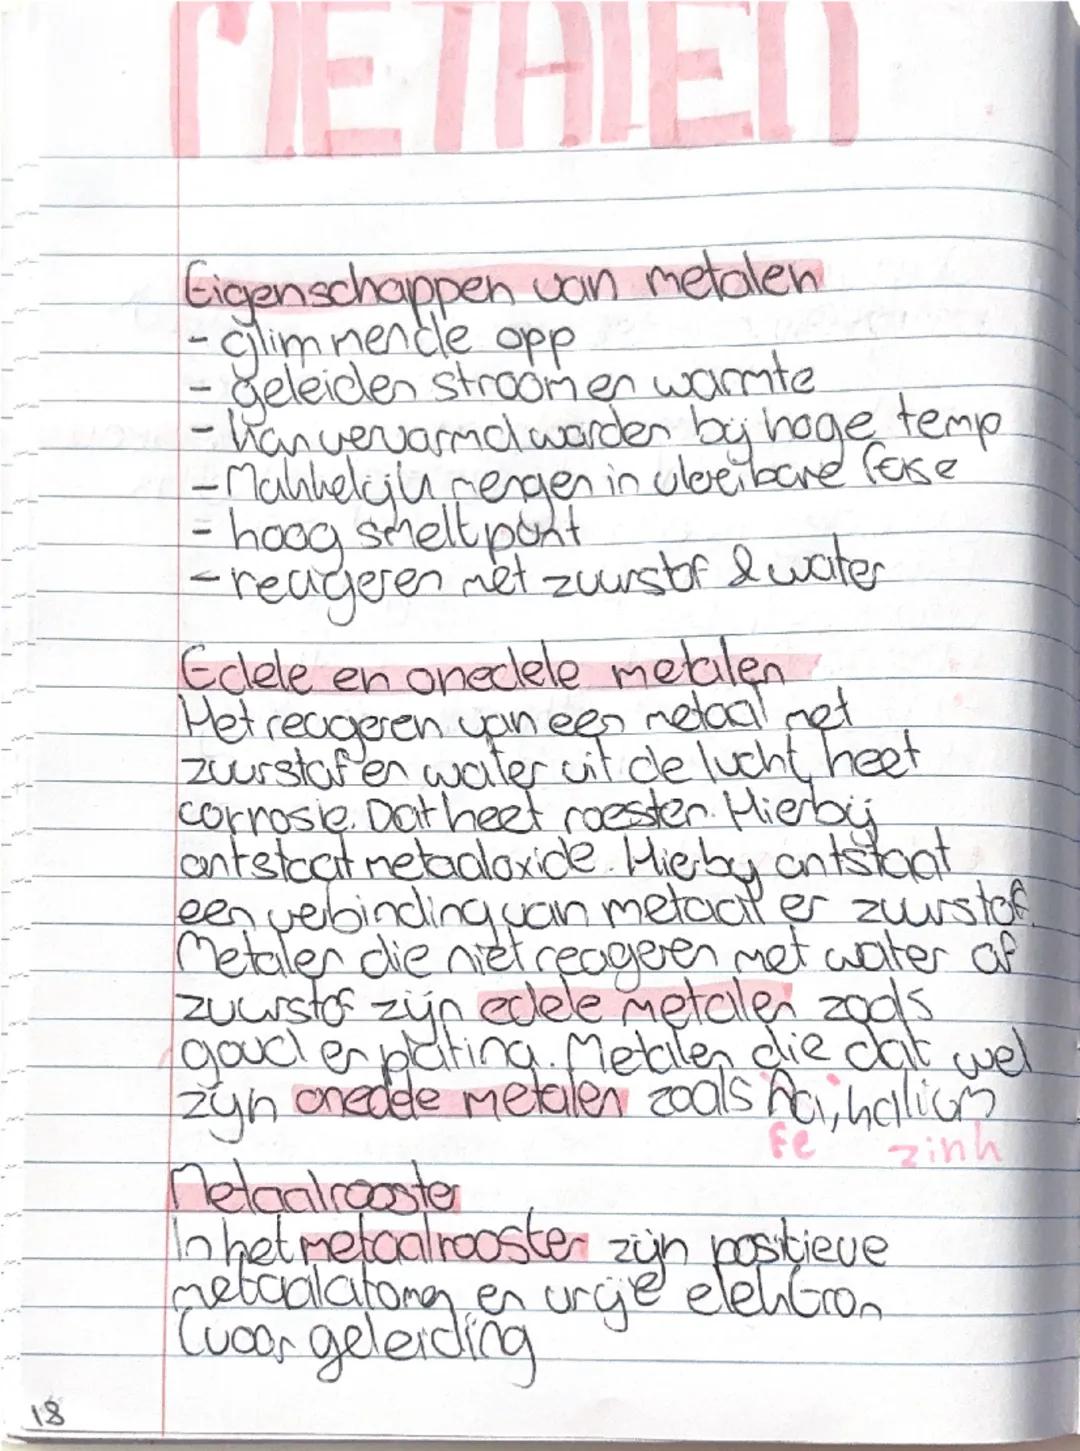 METALEN
Eigenschappen van metalen
- glimmende opp
- geleiden stroom en warmte
- kan vervormd worden bij hoge temp
- Makkelijk mengen in vloeibare fase
- hoog smeltpunt
- reageren met zuurstof & water
Edele en onedele metalen
Het reageren van een metaal met
zuurstof en water uit de lucht, heet
corrosie. Dat heet roesten. Hierbij
ontstaat metaaloxide. Hierbij ontstaat
een verbinding van metaal en zuurstof.
Metalen die niet reageren met water of
zuurstof zijn edele metalen zoals
goud en platina. Metalen die dat wel
zijn onedele metalen zoals kalium
Fe zink
Metaalrooster
In het metaalrooster zijn positieve
metaalatomen en vrije elektron
(voor geleiding
18